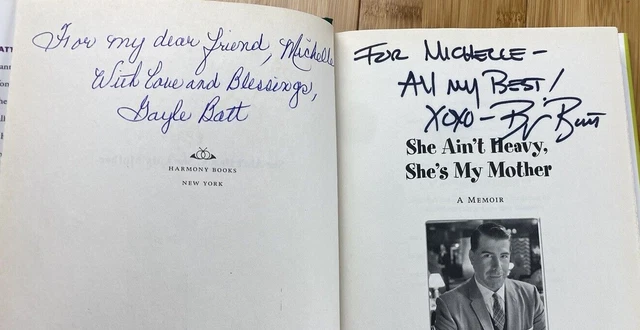 For my dear friend, Michelle
With Love and Blessings,
Gayle Batt
HARMONY BOOKS
NEW YORK
FOR MICHELLE -
All my BEST!
XOXO - Bryan Batt
She Ain't Heavy,
She's My Mother
A MEMOIR